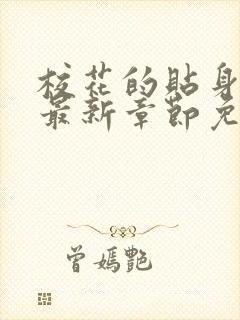 校花的貼身
最新章節免
曾媽艷